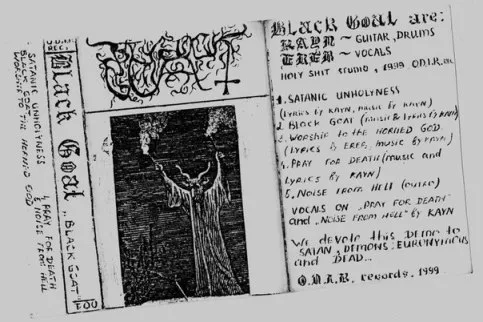 SATANIC UNHOLYNESS
BLACK GOAT
WORSHIP TO THE HORNED GOD
4. PRAY FOR DEATH
5. NOISE FROM HELL
O.D.I.R.
REC.
Black Goat
„BLACK GOAT"
001
BLACK
GOAT
Black Goat are:
KAYN ~ GUITAR, DRUMS
EREB ~ VOCALS
HOLY SHIT STUDIO, 1999 O.D.I.R. inc
1. SATANIC UNHOLYNESS
(LYRICS BY KAYN, MUSIC BY KAYN)
2. BLACK GOAT (MUSIC & LYRICS BY KAYN)
3. WORSHIP TO THE HORNED GOD
(LYRICS BY EREB, MUSIC BY KAYN)
4. PRAY FOR DEATH (MUSIC and
LYRICS BY KAYN)
5. NOISE FROM HELL (OUTRO)
VOCALS ON „PRAY FOR DEATH"
and „NOISE FROM HELL" BY KAYN
We devote this Demo to
SATAN, DEMONS: EURONYMOUS
and DEAD...
records, 1999